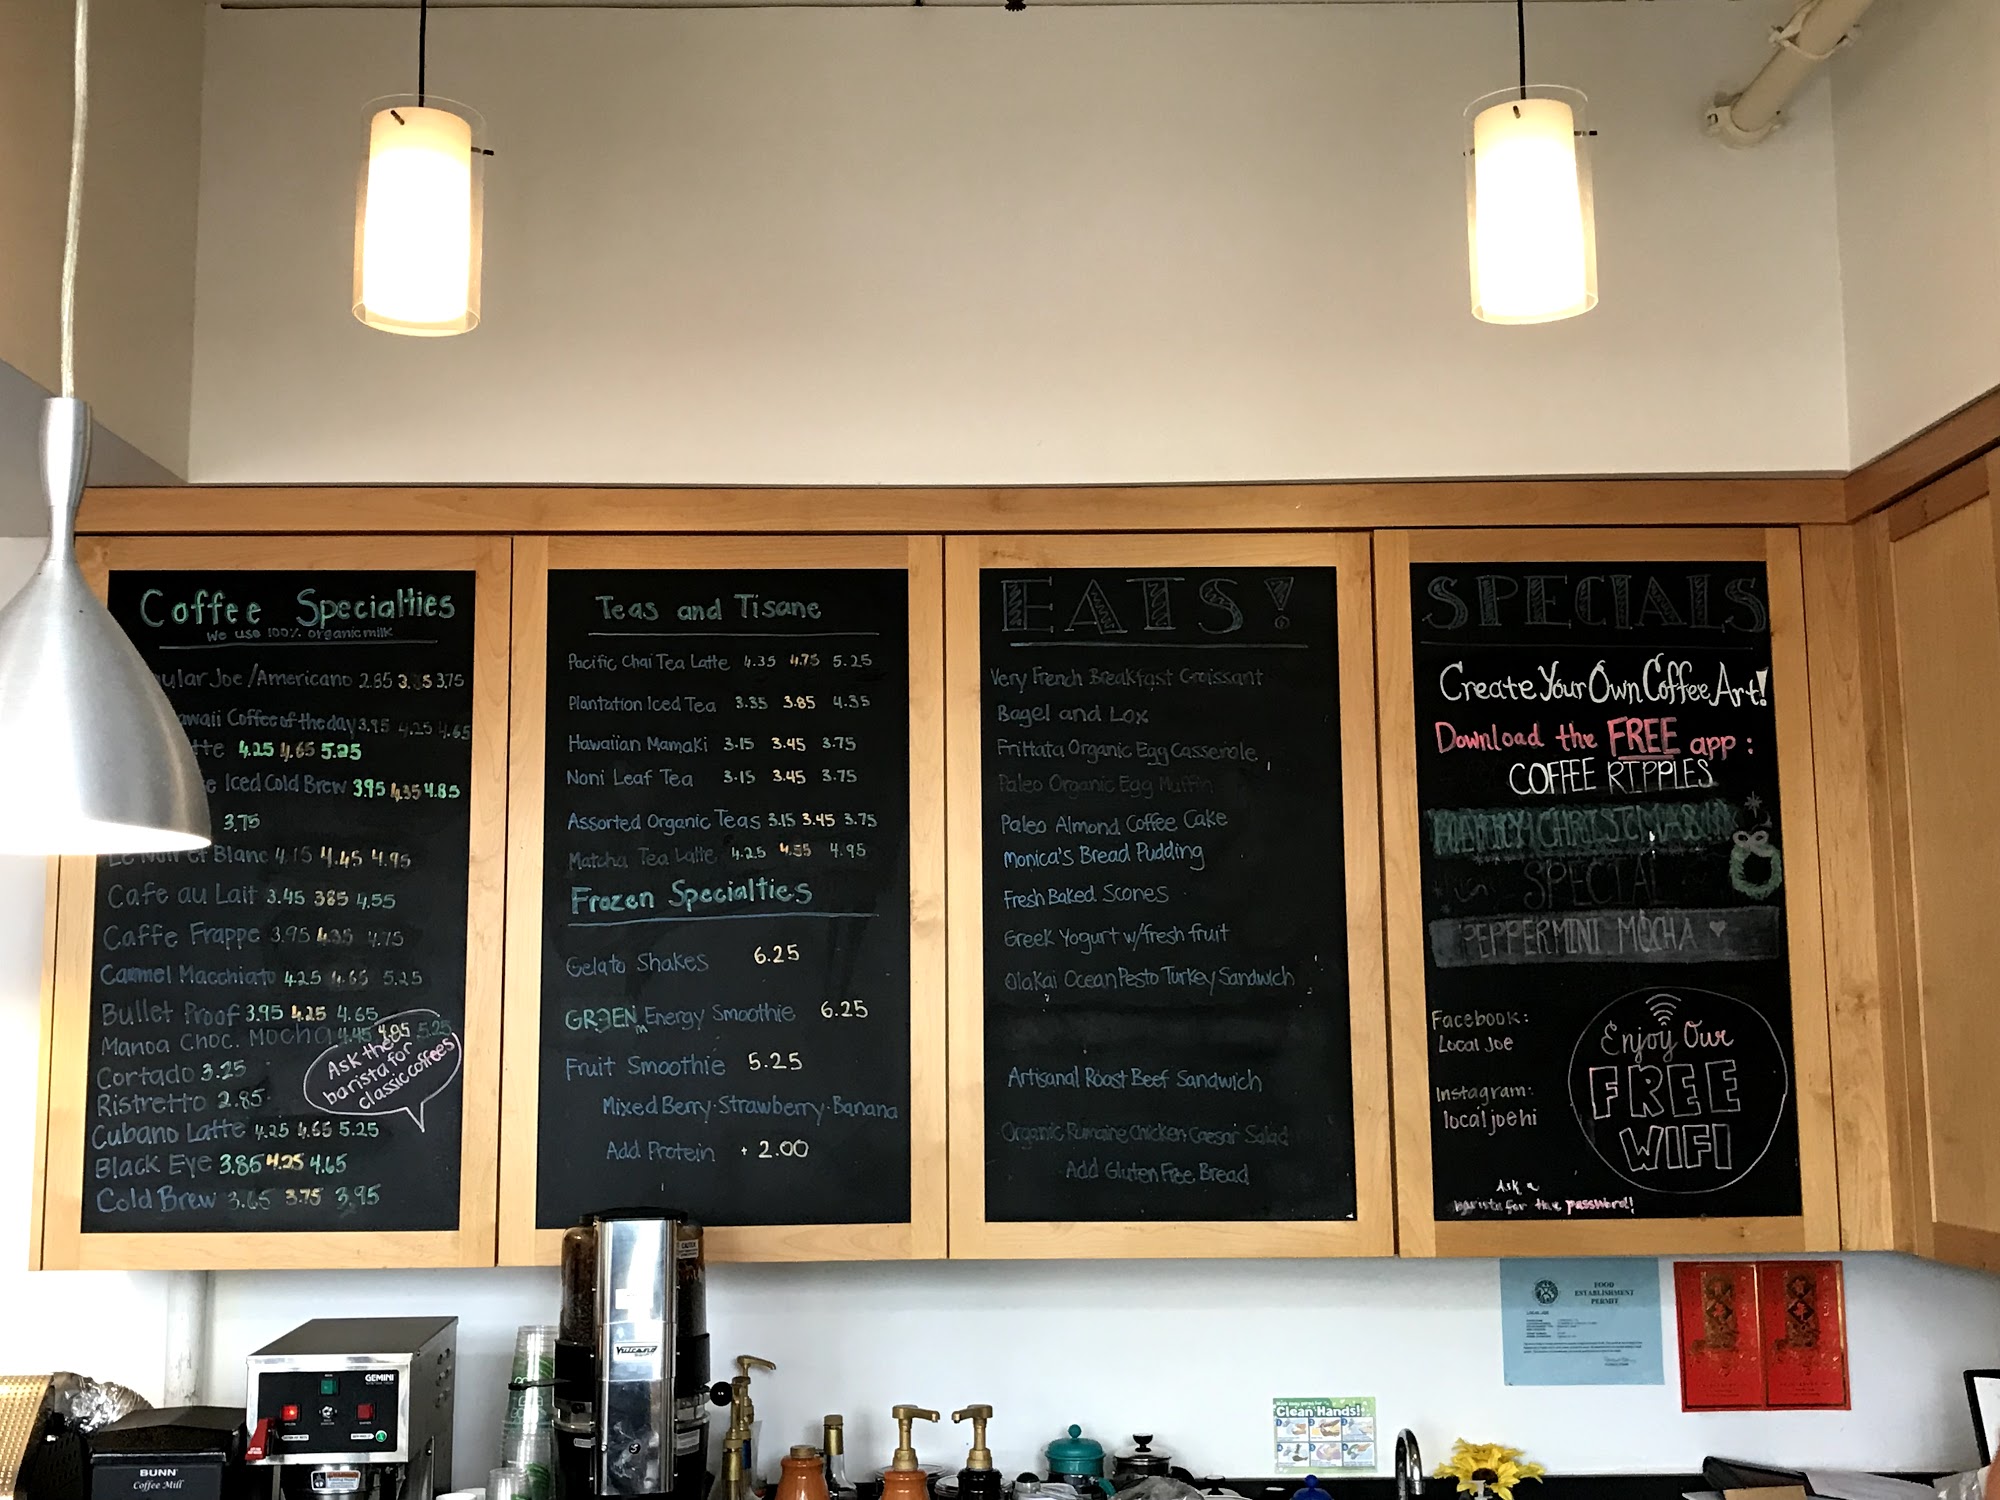 Coffee Specialties
We use 100% organic milk
ular Joe/Americano 2.85 3.35 3.75
awaii Coffee of the day 3.95 4.25 4.65
tte 4.25 4.65 5.25
e Iced Cold Brew 3.95 4.35 4.85
3.75
Le Noir et Blanc 4.15 4.45 4.95
Cafe au Lait 3.45 3.85 4.55
Caffe Frappe 3.95 4.35 4.75
Caramel Macchiato 4.25 4.65 5.25
Bullet Proof 3.95 4.25 4.65
Manoa Choc. Mocha 4.45 4.85 5.25
Cortado 3.25
Ristretto 2.85
Cubano Latte 4.25 4.65 5.25
Black Eye 3.85 4.25 4.65
Cold Brew 3.65 3.75 3.95
Ask the
barista for
classic coffees
Teas and Tisane
Pacific Chai Tea Latte 4.35 4.75 5.25
Plantation Iced Tea 3.35 3.85 4.35
Hawaiian Mamaki 3.15 3.45 3.75
Noni Leaf Tea 3.15 3.45 3.75
Assorted Organic Teas 3.15 3.45 3.75
Matcha Tea Latte 4.25 4.55 4.95
Frozen Specialties
Gelato Shakes 6.25
GREEN Energy Smoothie 6.25
Fruit Smoothie 5.25
Mixed Berry · Strawberry · Banana
Add Protein + 2.00
EATS!
Very French Breakfast Croissant
Bagel and Lox
Frittata Organic Egg Casserole
Paleo Organic Egg Muffin
Paleo Almond Coffee Cake
Monica's Bread Pudding
Fresh Baked Scones
Greek Yogurt w/fresh fruit
OlaKai Ocean Pesto Turkey Sandwich
Artisanal Roast Beef Sandwich
Organic Rumaine Chicken Caesar Salad
Add Gluten Free Bread
SPECIALS
Create Your Own Coffee Art!
Download the FREE app:
COFFEE RIPPLES
SPECIAL
PEPPERMINT MOCHA
Facebook:
Local Joe
Instagram:
localjoehi
Enjoy Our
FREE
WIFI
Ask a
barista for the password!!
FOOD
ESTABLISHMENT
PERMIT
Clean Hands!
GEMINI
BUNN
Coffee Mill
Vulcano